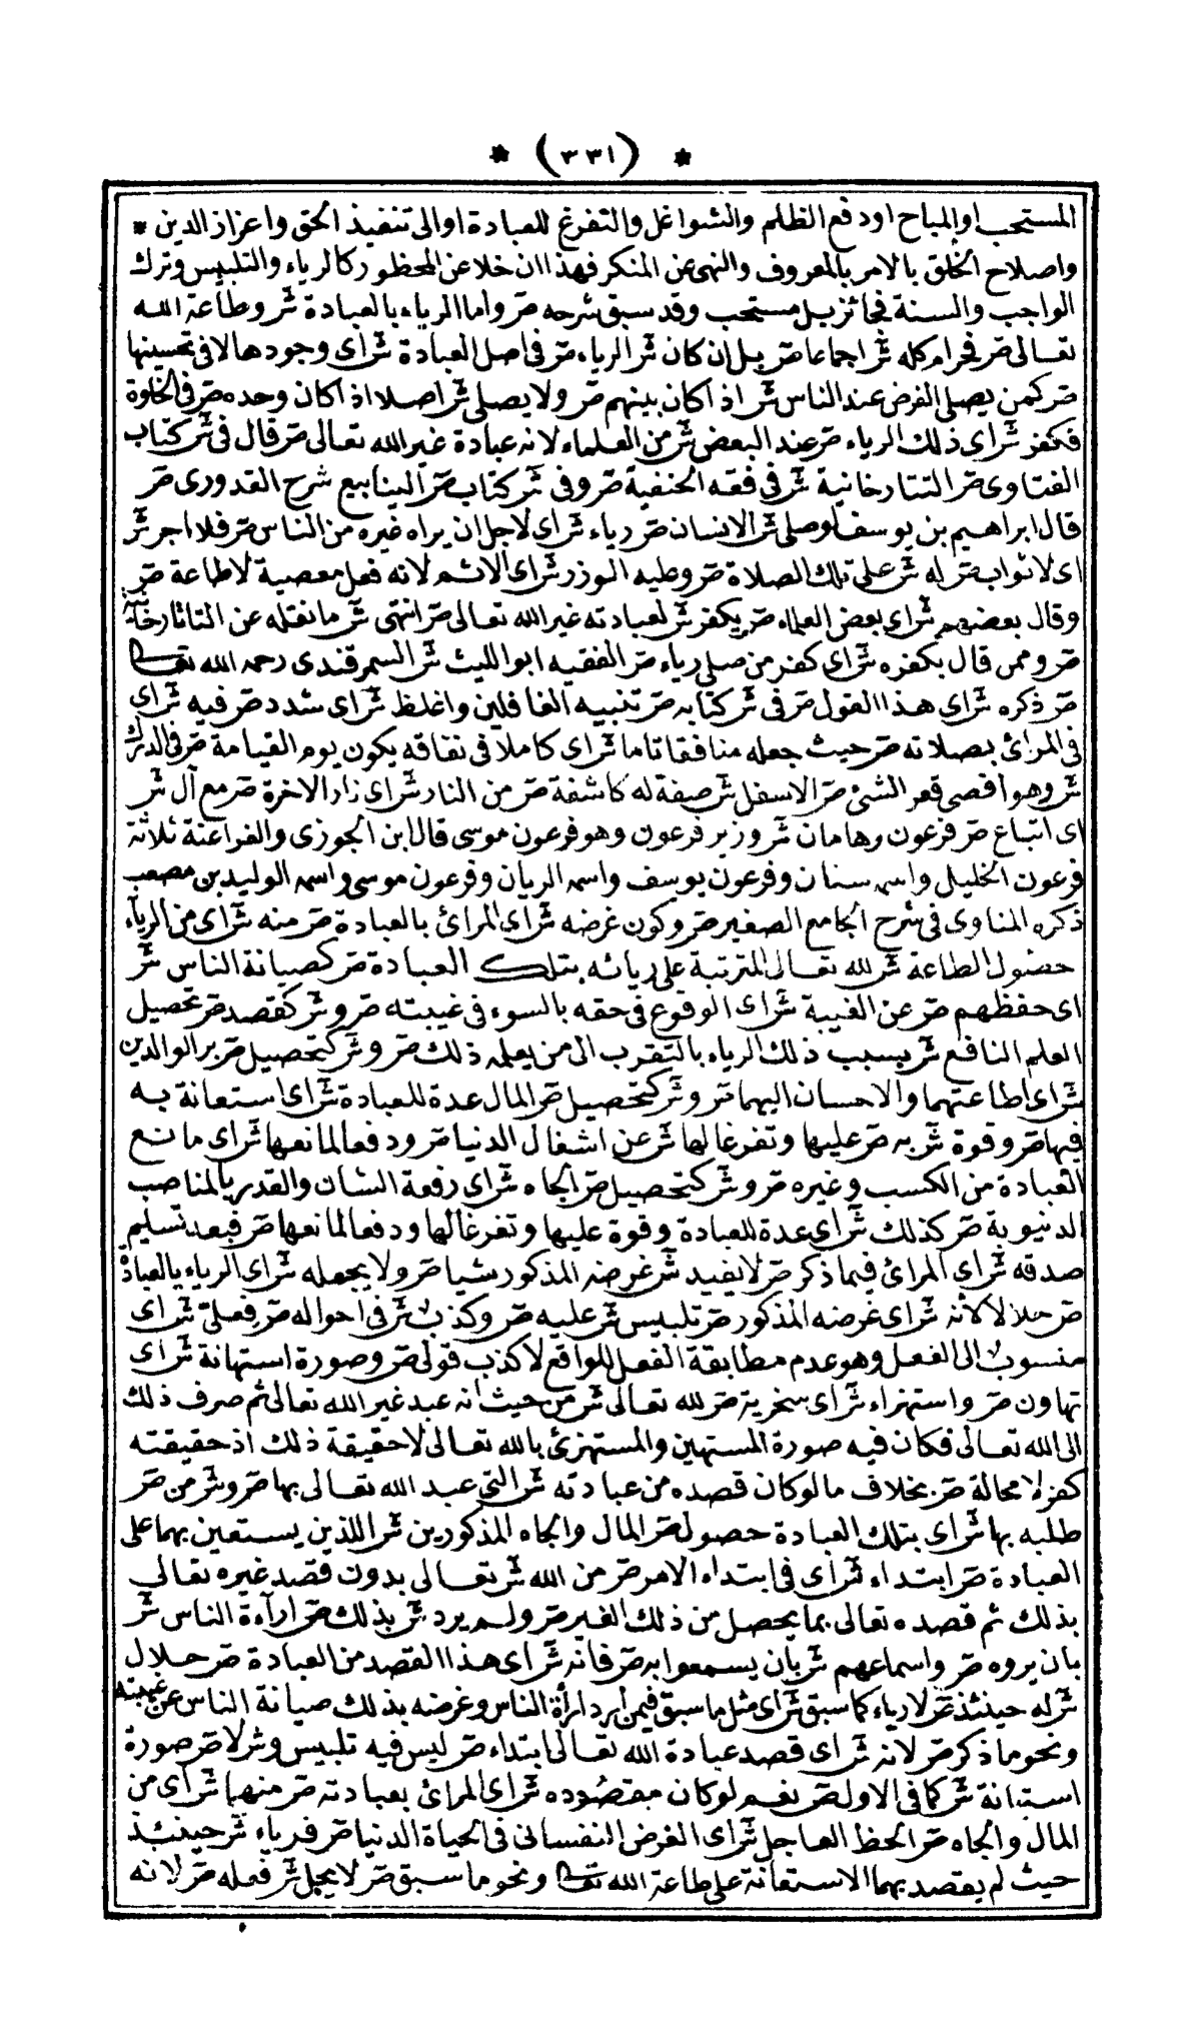 * (٣٣١) *
المستحب او المباح او دفع الظلم والشواغل والتفرغ للعبادة او الى تنفيذ الحق واعزاز الدين *
واصلاح الخلق بالامر بالمعروف والنهى عن المنكر فهذا ان خلا عن المحظور كالرياء والتلبيس وترك
الواجب والسنة فجائز بل مستحب وقد سبق شرحه صر واما الرياء بالعبادة شر وطاعة الله
تعالى صر فحرام كله شر اجماعا صر بل ان كان شر الرياء صر فى اصل العبادة شر اى وجودها لا فى تحسينها
صر كمن يصلى الفرض عند الناس شر اذا كان بينهم صر ولا يصلى شر اصلا اذا كان وحده صر فى الخلوة
فكفر شر اى ذلك الرياء صر عند البعض شر من العلماء لانه عبادة غير الله تعالى صر قال فى شر كتاب
الفتاوى صر التتارخانية شر فى فقه الحنفية صر وفى شر كتاب صر الينابيع شرح القدورى صر
قال ابراهيم بن يوسف لو صلى شر الانسان صر رياء شر اى لاجل ان يراه غيره من الناس صر فلا اجر شر
اى لا ثواب صر له شر على تلك الصلاة صر وعليه الوزر شر اى الاثم لانه فعل معصية لا طاعة صر
وقال بعضهم شر اى بعض العلماء صر يكفر شر لعبادته غير الله تعالى صر انتهى شر ما نقله عن التاتارخانية
صر وممن قال بكفره شر اى كفر من صلى رياء صر الفقيه ابو الليث شر السمرقندى رحمه الله تعالى
صر ذكره شر اى هذا القول صر فى شر كتابه صر تنبيه الغافلين واغلظ شر اى شدد صر فيه شر اى
فى المرائ بصلاته صر حيث جعله منافقا تاما شر اى كاملا فى نفاقه يكون يوم القيامة صر فى الدرك
شر وهو اقصى قعر الشئ صر الاسفل شر صفة له كاشفة صر من النار شر اى نار الاخرة صر مع آل شر
اى اتباع صر فرعون وهامان شر وزير فرعون وهو فرعون موسى قال ابن الجوزى والفراعنة ثلاثة
فرعون الخليل واسمه سنان وفرعون يوسف واسمه الريان وفرعون موسى واسمه الوليد بن مصعب
ذكره المناوى فى شرح الجامع الصغير صر وكون غرضه شر اى المرائ بالعبادة صر منه شر اى من الرياء
حصول الطاعة شر لله تعالى المترتبة على ريائه بتلك العبادة صر كصيانة الناس شر
اى حفظهم صر عن الغيبة شر اى الوقوع فى حقه بالسوء فى غيبته صر و شر كقصد صر تحصيل
العلم النافع شر بسبب ذلك الرياء بالتقرب الى من يعلمه ذلك صر و شر كتحصيل صر بر الوالدين
شر اى اطاعتهما والاحسان اليهما صر و شر كتحصيل صر المال عدة للعبادة شر اى استعانة به
فيها صر وقوة شر به صر عليها وتفرغا لها شر عن اشغال الدنيا صر ودفعا لمانعها شر اى مانع
العبادة من الكسب وغيره صر و شر كتحصيل صر الجاه شر اى رفعة الشان والقدر بالمناصب
الدنيوية صر كذلك شر اى عدة للعبادة وقوة عليها وتفرغا لها ودفعا لمانعها صر فبعد تسليم
صدقه شر اى المرائ فيما ذكر صر لا يفيد شر غرضه المذكور شيا صر ولا يجعله شر اى الرياء بالعبادة
صر حلالا لانه شر اى غرضه المذكور صر تلبيس شر عليه صر وكذب شر فى احواله صر فعلى شر اى
منسوب الى الفعل وهو عدم مطابقة الفعل للواقع لا كذب قولى صر وصورة استهانة شر اى
تهاون صر واستهزاء شر اى سخرية صر لله تعالى شر من حيث انه عبد غير الله تعالى ثم صرف ذلك
الى الله تعالى فكان فيه صورة المستهين والمستهزئ بالله تعالى لا حقيقة ذلك اذ حقيقته
كفر لا محالة صر بخلاف ما لو كان قصده من عبادته شر التى عبد الله تعالى بها صر و شر من صر
طلبه بها شر اى بتلك العبادة حصول صر المال والجاه المذكورين شر اللذين يستعين بهما على
العبادة صر ابتداء شر اى فى ابتداء الامر صر من الله شر تعالى بدون قصد غيره تعالى
بذلك ثم قصده تعالى بما يحصل من ذلك الغير صر ولم يرد شر بذلك صر ارآءة الناس شر
بان يروه صر واسماعهم شر بان يسمعوا به صر فانه شر اى هذا القصد من العبادة صر حلال
شر له حينئذ صر لا رياء كما سبق شر اى مثل ما سبق فيمن اراد ارأة الناس وغرضه بذلك صيانة الناس عن غيبته
ونحو ما ذكر صر لانه شر اى قصد عبادة الله تعالى ابتداء صر ليس فيه تلبيس و شر لا صر صورة
استهانة شر كما فى الاول صر نعم لو كان مقصوده شر اى المرائ بعبادته صر منهما شر اى من
المال والجاه صر الحظ العاجل شر اى الغرض النفسانى فى الحياة الدنيا صر فرياء شر حينئذ
حيث لم يقصد بهما الاستعانة على طاعة الله تعالى ونحو ما سبق صر لا يحل شر فعله صر لانه